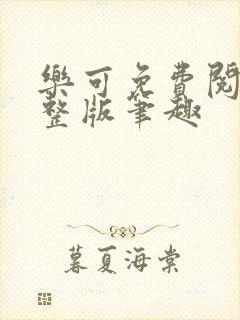 樂可免費閱
整版筆趣
暮夏海棠